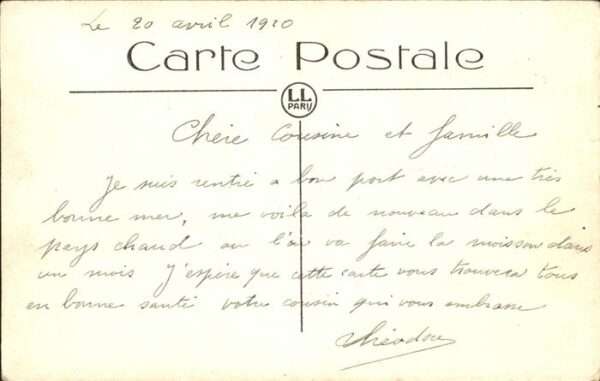 Le 20 avril 1910
Carte Postale
LL
PARIS
Chère Cousine et famille
Je suis rentré a bon port avec une très
bonne mer, me voila de nouveau dans le
pays chaud ou l'on va faire la moisson dans
un mois J'espère que cette carte vous trouvera tous
en bonne santé votre cousin qui vous embrasse
Théodore